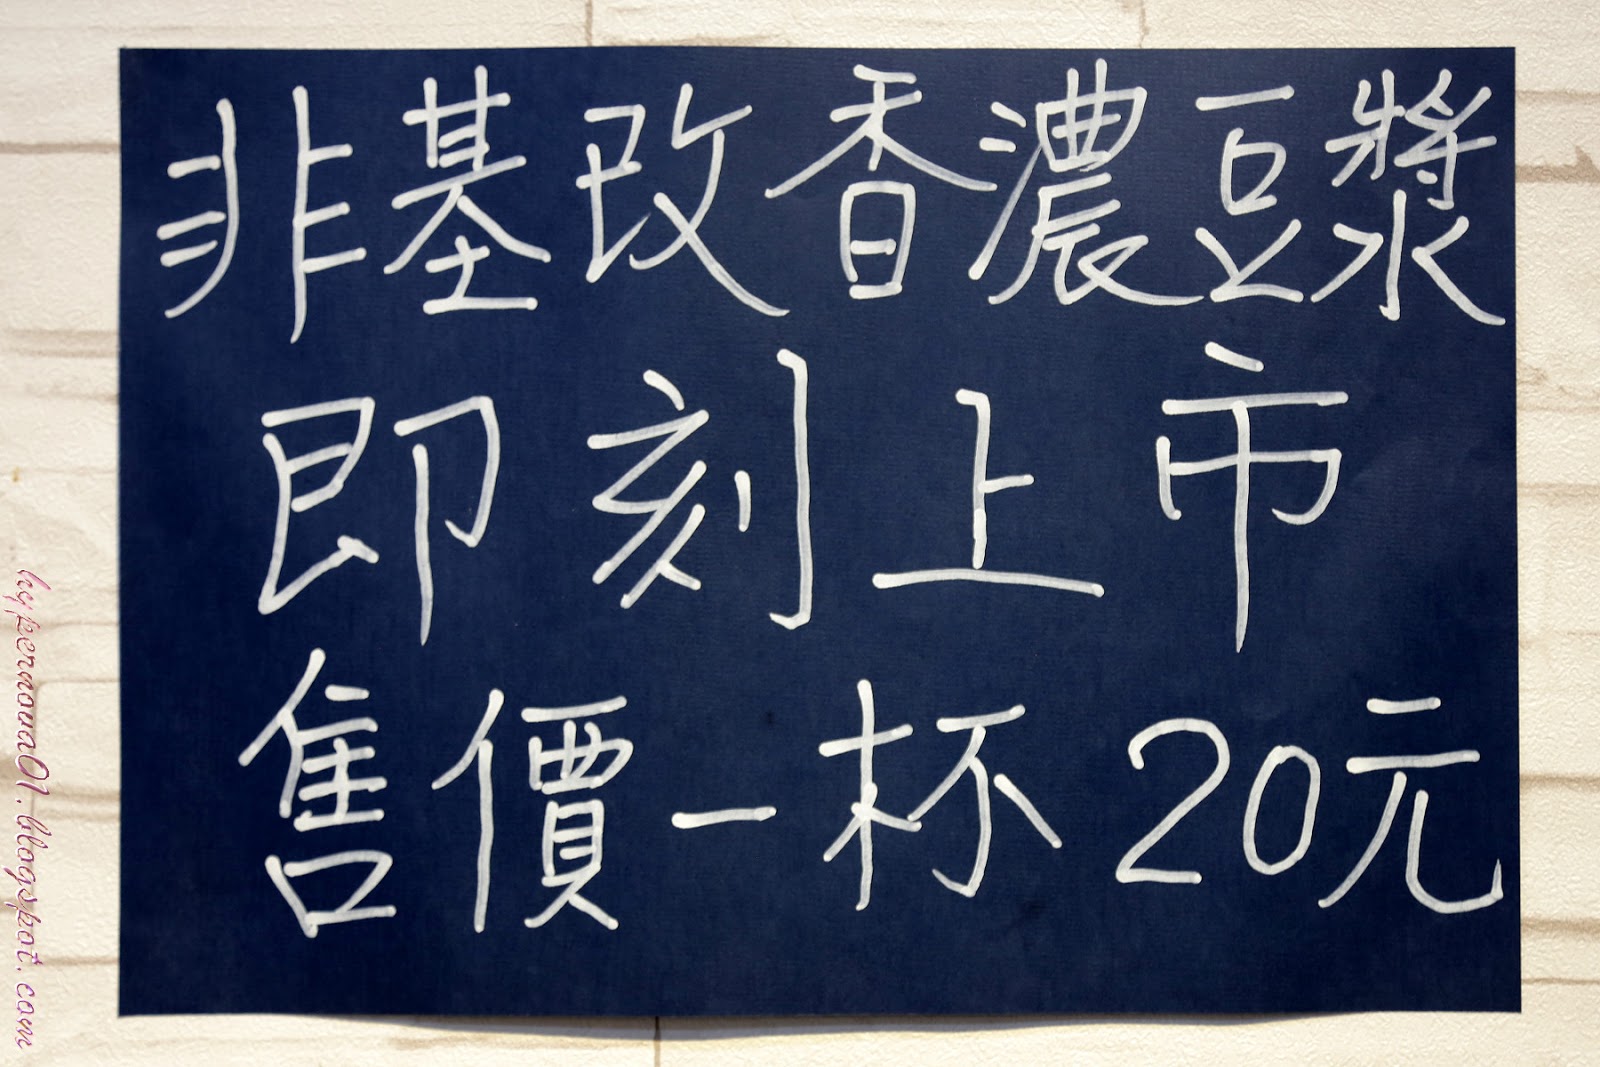 非基改香濃豆漿
即刻上市
售價一杯20元
hypernova01.blogspot.com